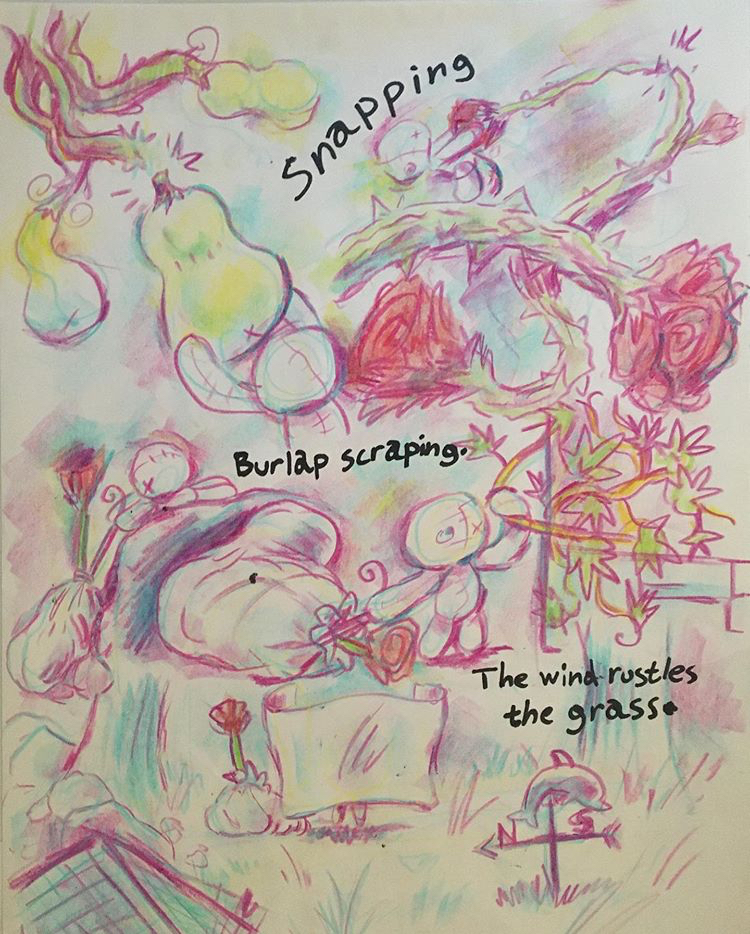 Snapping
Burlap scraping.
The wind rustles
the grass.
N S